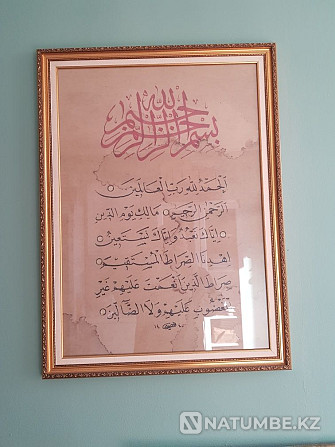 بسم الله الرحمن الرحيم
الحمد لله رب العالمين
الرحمن الرحيم مالك يوم الدين
إياك نعبد وإياك نستعين
اهدنا الصراط المستقيم
صراط الذين أنعمت عليهم غير
المغضوب عليهم ولا الضالين
NATUMBE.KZ